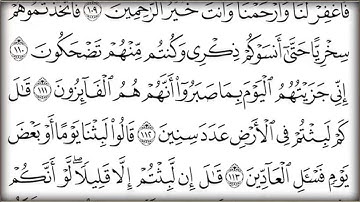 فَٱغْفِرْ لَنَا وَٱرْحَمْنَا وَأَنتَ خَيْرُ ٱلرَّٰحِمِينَ ١٠٩ فَٱتَّخَذْتُمُوهُمْ
سِخْرِيًّا حَتَّىٰٓ أَنسَوْكُمْ ذِكْرِى وَكُنتُم مِّنْهُمْ تَضْحَكُونَ ١١٠
إِنِّى جَزَيْتُهُمُ ٱلْيَوْمَ بِمَا صَبَرُوٓا۟ أَنَّهُمْ هُمُ ٱلْفَآئِزُونَ ١١١ قَٰلَ
كَمْ لَبِثْتُمْ فِى ٱلْأَرْضِ عَدَدَ سِنِينَ ١١٢ قَالُوا۟ لَبِثْنَا يَوْمًا أَوْ بَعْضَ
يَوْمٍ فَسْـَٔلِ ٱلْعَآدِّينَ ١١٣ قَٰلَ إِن لَّبِثْتُمْ إِلَّا قَلِيلًا لَّوْ أَنَّكُمْ